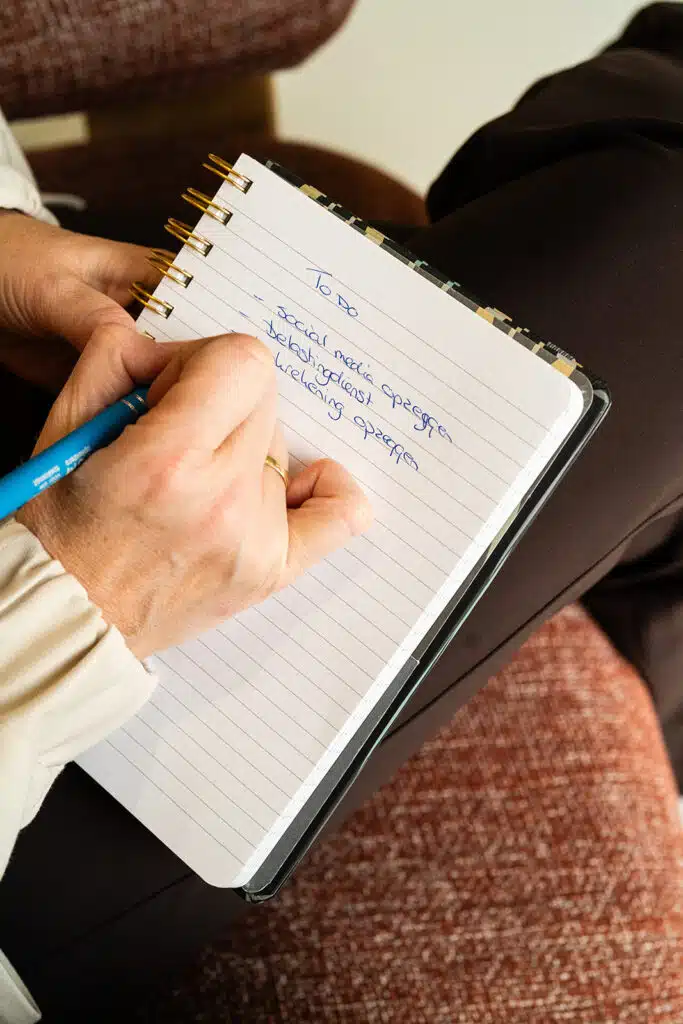 To Do
- social media opzeggen
- belastingdienst
rekening opzeggen